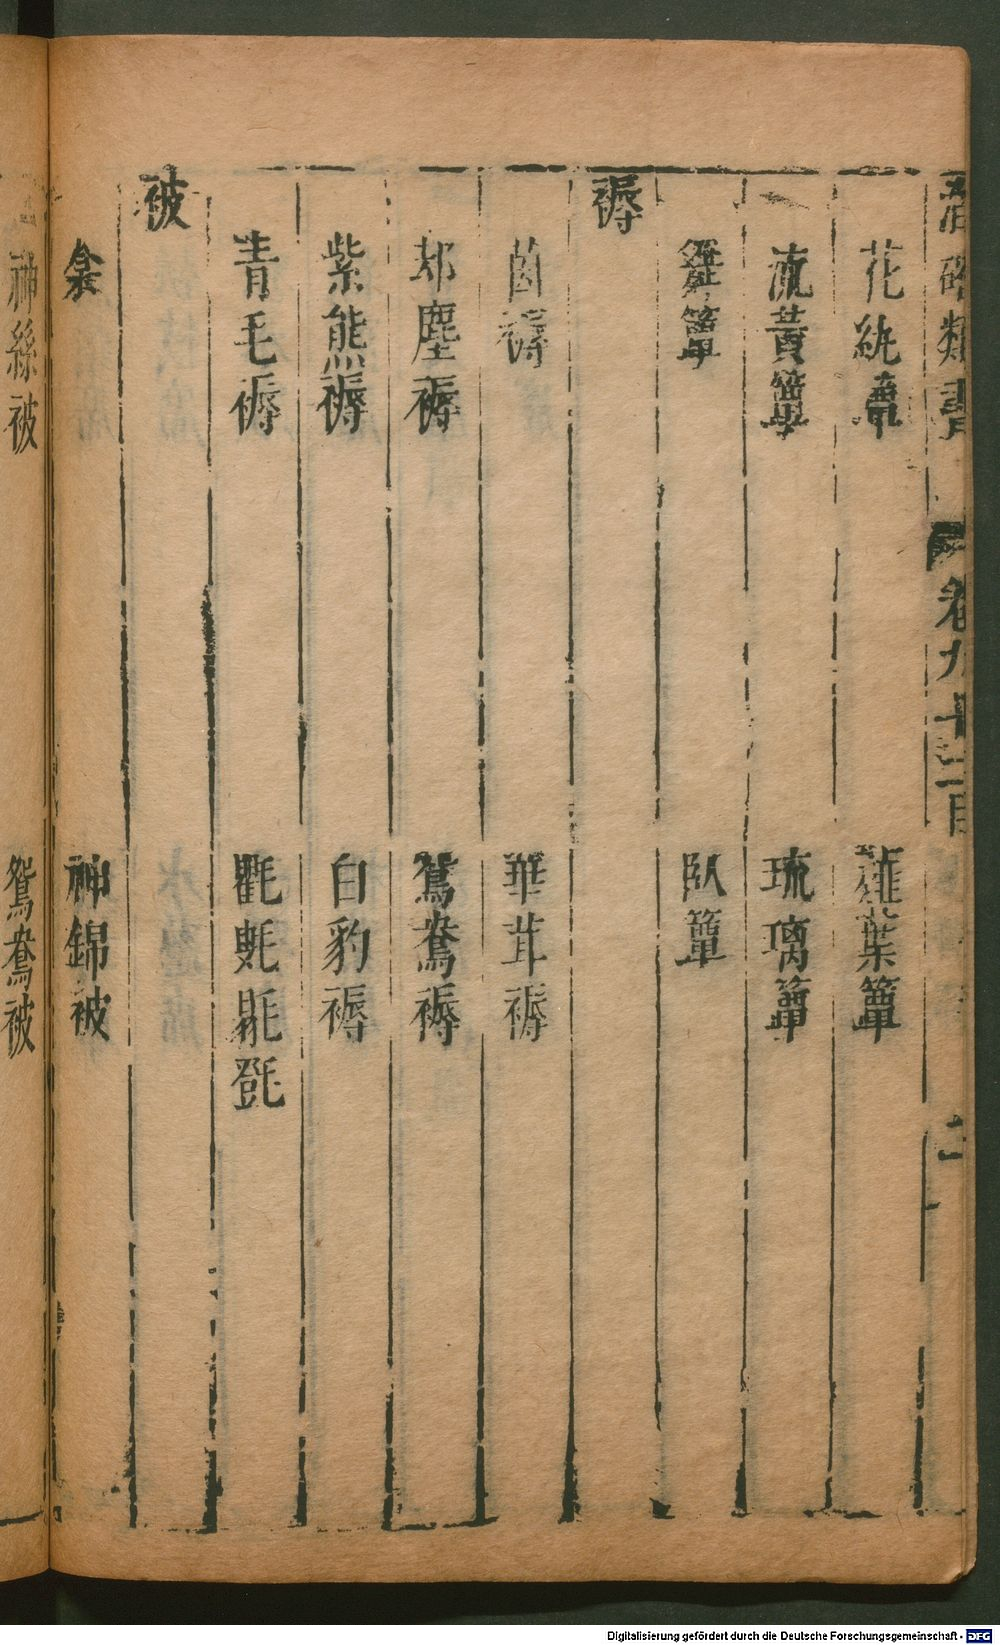 類書 卷九十二目 二
花紈簟 薤葉簟
流黃簟 琉璃簟
簟 臥簟
褥
茵褥 華茸褥
塵褥 鴛鴦褥
紫熊褥 白豹褥
青毛褥 氍毹毾㲪
被
衾 神錦被
神絲被 鴛鴦被
Digitalisierung gefördert durch die Deutsche Forschungsgemeinschaft - DFG